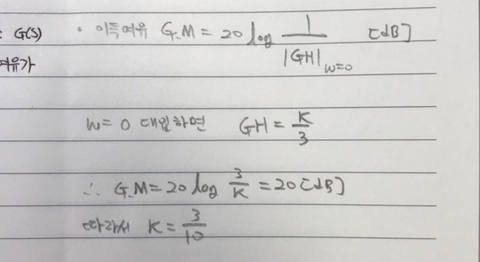 : G(s) · 이득여유 G.M = 20 log 1/|GH|w=0 [dB]
여유가
w = 0 대입하면 GH = K/3
∴ G.M = 20 log 3/K = 20 [dB]
따라서 K = 3/10